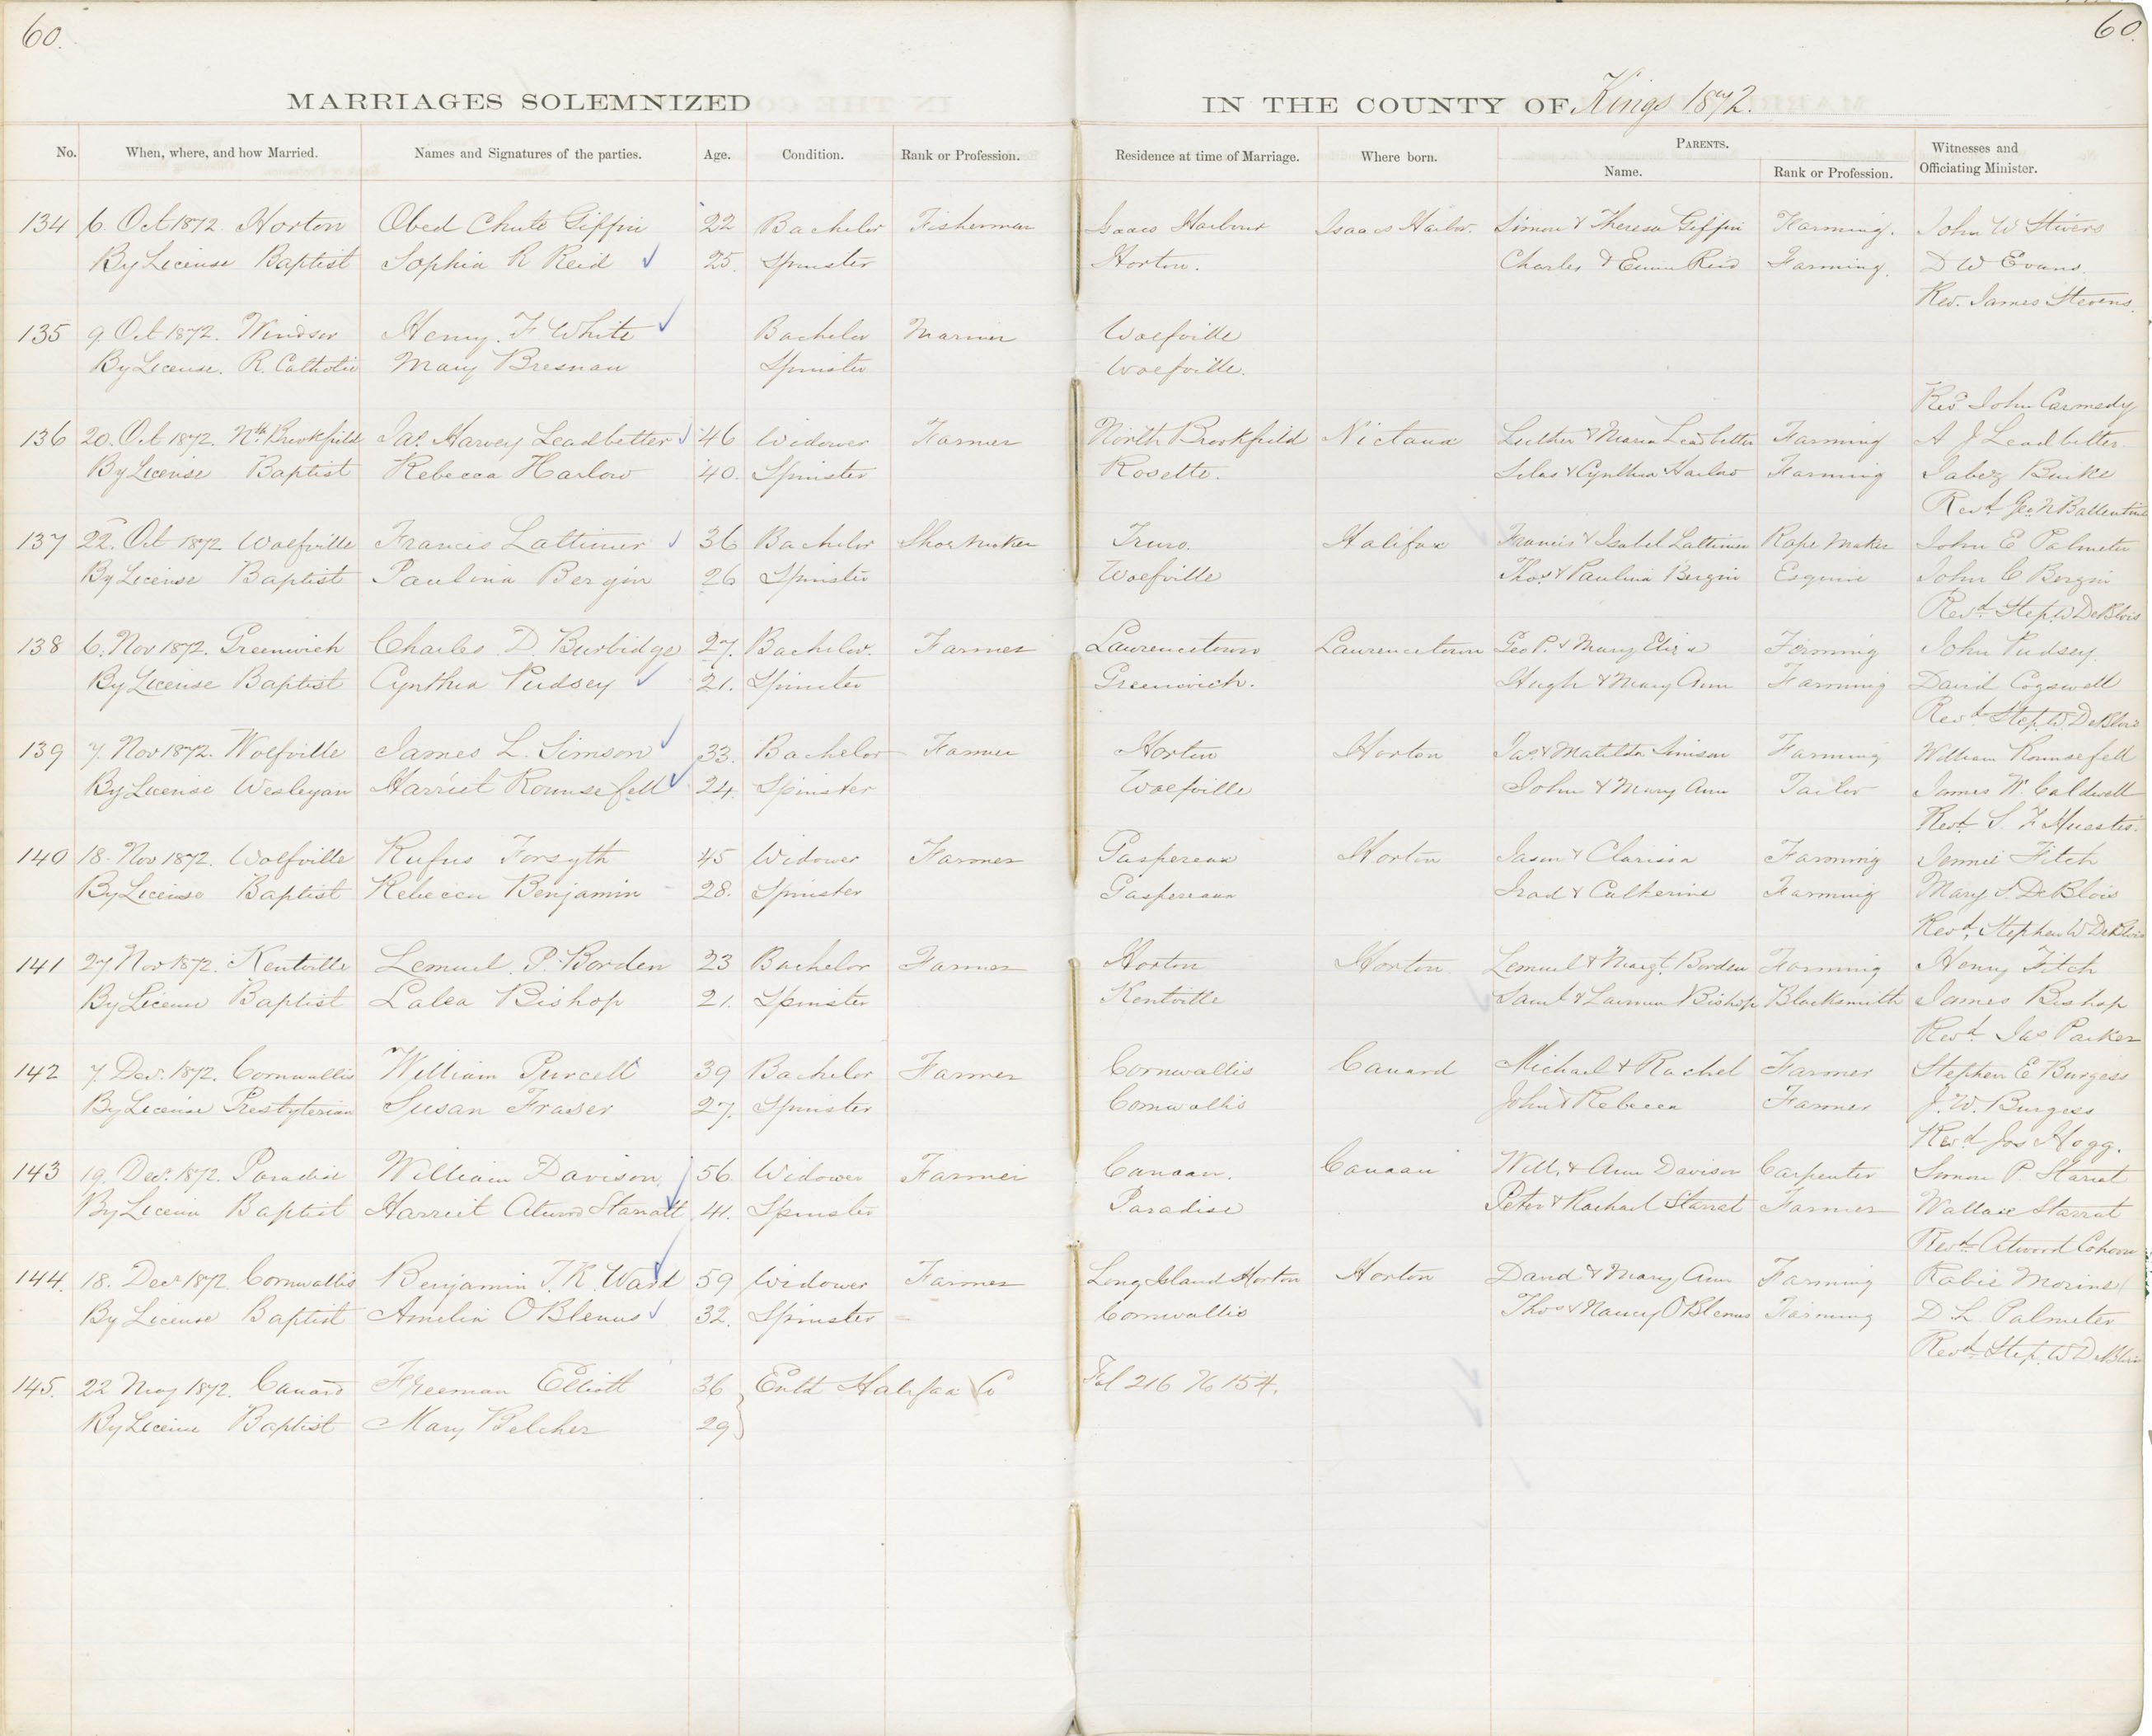 60. 60.
MARRIAGES SOLEMNIZED IN THE COUNTY OF Kings 1872.
No. When, where, and how Married. Names and Signatures of the parties. Age. Condition. Rank or Profession. Residence at time of Marriage. Where born. PARENTS. Name. Rank or Profession. Witnesses and Officiating Minister.
134 6. Oct 1872. Horton Obed Chute Giffin 22 Bachelor Fisherman Isaacs Harbour Isaacs Harbr. Simon & Theresa Giffin Farming. John W Stivers
By License Baptist Sophia R Reid 25. Spinster Horton. Charles & Reid Farming. D W Evans.
Rev. James Stevens.
135 9. Oct 1872. Windsor Henry. F. White Bachelor Mariner Wolfville
By License. R. Catholic Mary Bresnan Spinster Wolfville.
Revd John Carmody
136 20. Oct 1872. Nth. Brookfield Jas. Harvey Leadbetter 46 Widower Farmer North Brookfield Nictaux Luther & Maria Leadbetter Farming A J Leadbetter.
By License Baptist Rebecca Harlow 40. Spinster Rosette. Silas & Cynthia Harlow Farming Jabez Burke
Revd. Geo N Ballentine
137 22. Oct 1872 Wolfville Francis Lattimer 36 Bachelor Shoe Maker Truro. Halifax Francis & Isabel Lattimer Rope Maker John E Palmeter
By License Baptist Paulina Bergin 26 Spinster Wolfville Thos. & Paulina Bergin Esquire John C Bergin
Revd. Step. W DeBlois
138 6. Nov 1872. Greenwich Charles. D. Burbidge 27. Bachelor. Farmer Laurencetown Laurencetown Geo P. & Mary Eliza Farming John Pudsey.
By License Baptist Cynthia Pudsey 21. Spinster Greenwich. Hugh & Mary Ann Farming David Cogswell
Revd Step. W. DeBlois
139 7. Nov 1872. Wolfville James L. Simson 33. Bachelor Farmer Horton Horton Jas. & Matilda Simson Farming William Rounsefell
By License Wesleyan Harriet Rounsefell 24. Spinster Wolfville John & Mary Ann Tailor James W. Caldwell
Revd. S. F. Huestis.
140 18. Nov 1872. Wolfville Rufus Forsyth 45 Widower Farmer Gaspereau Horton Jason & Clarissa Farming Jennie Fitch
By License Baptist Rebecca Benjamin 28. Spinster Gaspereaux Irad & Catherine Farming Mary S. DeBlois
Revd. Stephen W DeBlois
141 27 Nov 1872. Kentville Lemuel. P. Borden 23 Bachelor Farmer Horton Horton Lemuel & Margt. Borden Farming Henry Fitch
By License Baptist Lalea Bishop 21. Spinster Kentville Saml & Bishop Blacksmith James Bishop
Revd. Jas Parker
142 7. Dec. 1872. Cornwallis William Purcell 39 Bachelor Farmer Cornwallis Canard Michael & Rachel Farmer Stephen E Burgess
By License Presbyterian Susan Fraser 27. Spinster Cornwallis John & Rebecca Farmer J. W. Burgess
Revd Jos Hogg.
143 19. Dec. 1872. Paradise William Davison. 56. Widower Farmer Canaan. Canaan Will. & Ann Davison Carpenter Simon P. Starrat
By License Baptist Harriet Atwood Starratt 41. Spinster Paradise Peter & Rachael Starrat Farmer Wallace Starrat
Revd. Atwood Cohoon
144. 18. Decr 1872 Cornwallis Benjamin T. R. Ward 59 Widower Farmer Long Island Horton Horton David & Mary Ann Farming Robie Morine
By License Baptist Amelia O Blenus 32. Spinster Cornwallis Thos & Nancy O Blenus Farming D. L. Palmeter
Revd. Step. W DeBlois
145. 22 May 1872. Canard Freeman Elliott 36 Entd Halifax Co Fol 216 No 154.
By License Baptist Mary Belcher 29